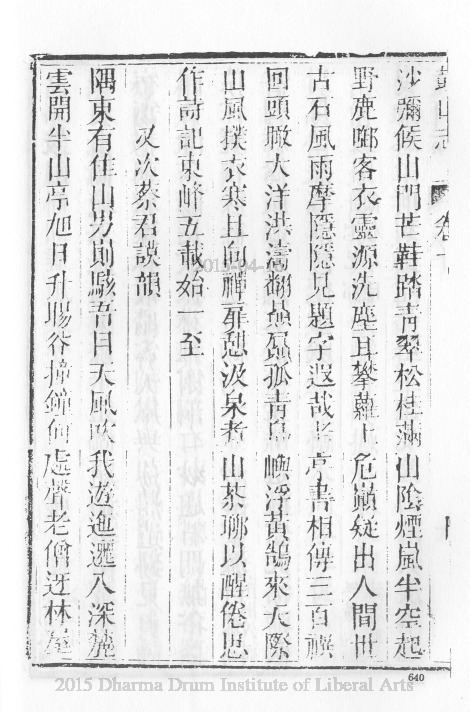 鼓山志 卷十
沙彌候山門芒鞋踏青翠松桂滿山陰煙嵐半空起
野鹿啣客衣靈源洗塵耳攀蘿上危巔疑出人間世
古石風雨摩隱隱見題字遐哉 亭書相傳三百禩
回頭瞰大洋洪濤翻贔屭孤青島嶼浮黃鵠來天際
山風撲衣寒且向禪扉憩汲泉煮山茶聊以醒倦思
作詩記東峰五載始一至
又次蔡君謨韻
隅東有佳山男崱駭吾目天風吹我遊迤邐入深麓
雲開半山亭旭日升暘谷撞鐘何處聲老僧迓林屋
640
2015 Dharma Drum Institute of Liberal Arts